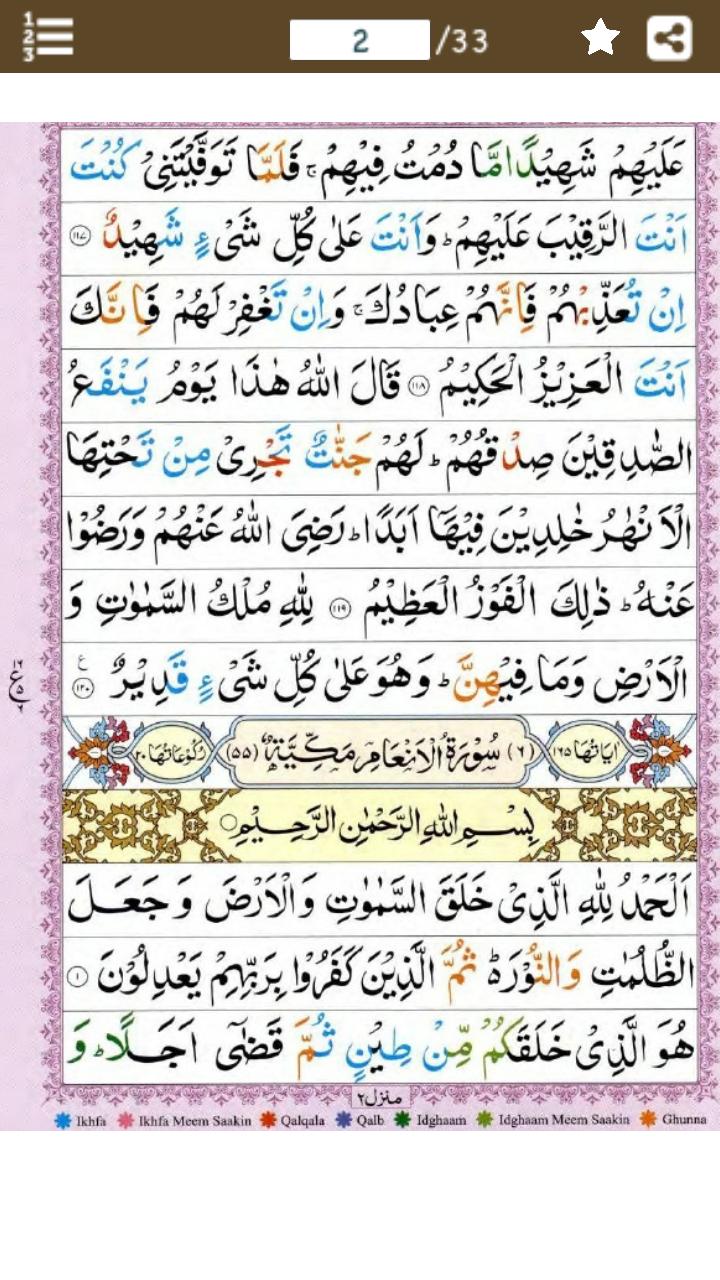 1
2
3
2 /33
عَلَيْهِمْ شَهِيْدًا مَّا دُمْتُ فِيْهِمْ ۚ فَلَمَّا تَوَفَّيْتَنِيْ كُنْتَ
اَنْتَ الرَّقِيْبَ عَلَيْهِمْ ؕ وَاَنْتَ عَلٰى كُلِّ شَىْءٍ شَهِيْدٌ ۝۱۱۷
اِنْ تُعَذِّبْهُمْ فَاِنَّهُمْ عِبَادُكَ ۚ وَاِنْ تَغْفِرْ لَهُمْ فَاِنَّكَ
اَنْتَ الْعَزِيْزُ الْحَكِيْمُ ۝۱۱۸ قَالَ اللّٰهُ هٰذَا يَوْمُ يَنْفَعُ
الصّٰدِقِيْنَ صِدْقُهُمْ ؕ لَهُمْ جَنّٰتٌ تَجْرِىْ مِنْ تَحْتِهَا
الْاَنْهٰرُ خٰلِدِيْنَ فِيْهَاۤ اَبَدًا ؕ رَضِىَ اللّٰهُ عَنْهُمْ وَرَضُوْا
عَنْهُ ؕ ذٰلِكَ الْفَوْزُ الْعَظِيْمُ ۝۱۱۹ لِلّٰهِ مُلْكُ السَّمٰوٰتِ وَ
الْاَرْضِ وَمَا فِيْهِنَّ ؕ وَهُوَ عَلٰى كُلِّ شَىْءٍ قَدِيْرٌ ۝۱۲۰ ع
۱۶
ع ۵
اٰيَاتُهَا ۱۶۵ (۶) سُوْرَةُ الْاَنْعَامِ مَكِّيَّةٌ (۵۵) رُكُوْعَاتُهَا ۲۰
بِسْمِ اللّٰهِ الرَّحْمٰنِ الرَّحِيْمِ
اَلْحَمْدُ لِلّٰهِ الَّذِىْ خَلَقَ السَّمٰوٰتِ وَالْاَرْضَ وَجَعَلَ
الظُّلُمٰتِ وَالنُّوْرَ ؕ ثُمَّ الَّذِيْنَ كَفَرُوْا بِرَبِّهِمْ يَعْدِلُوْنَ ۝۱
هُوَ الَّذِىْ خَلَقَكُمْ مِّنْ طِيْنٍ ثُمَّ قَضٰۤى اَجَلًا ؕ وَ
منزل۲
Ikhfa Ikhfa Meem Saakin Qalqala Qalb Idghaam Idghaam Meem Saakin Ghunna